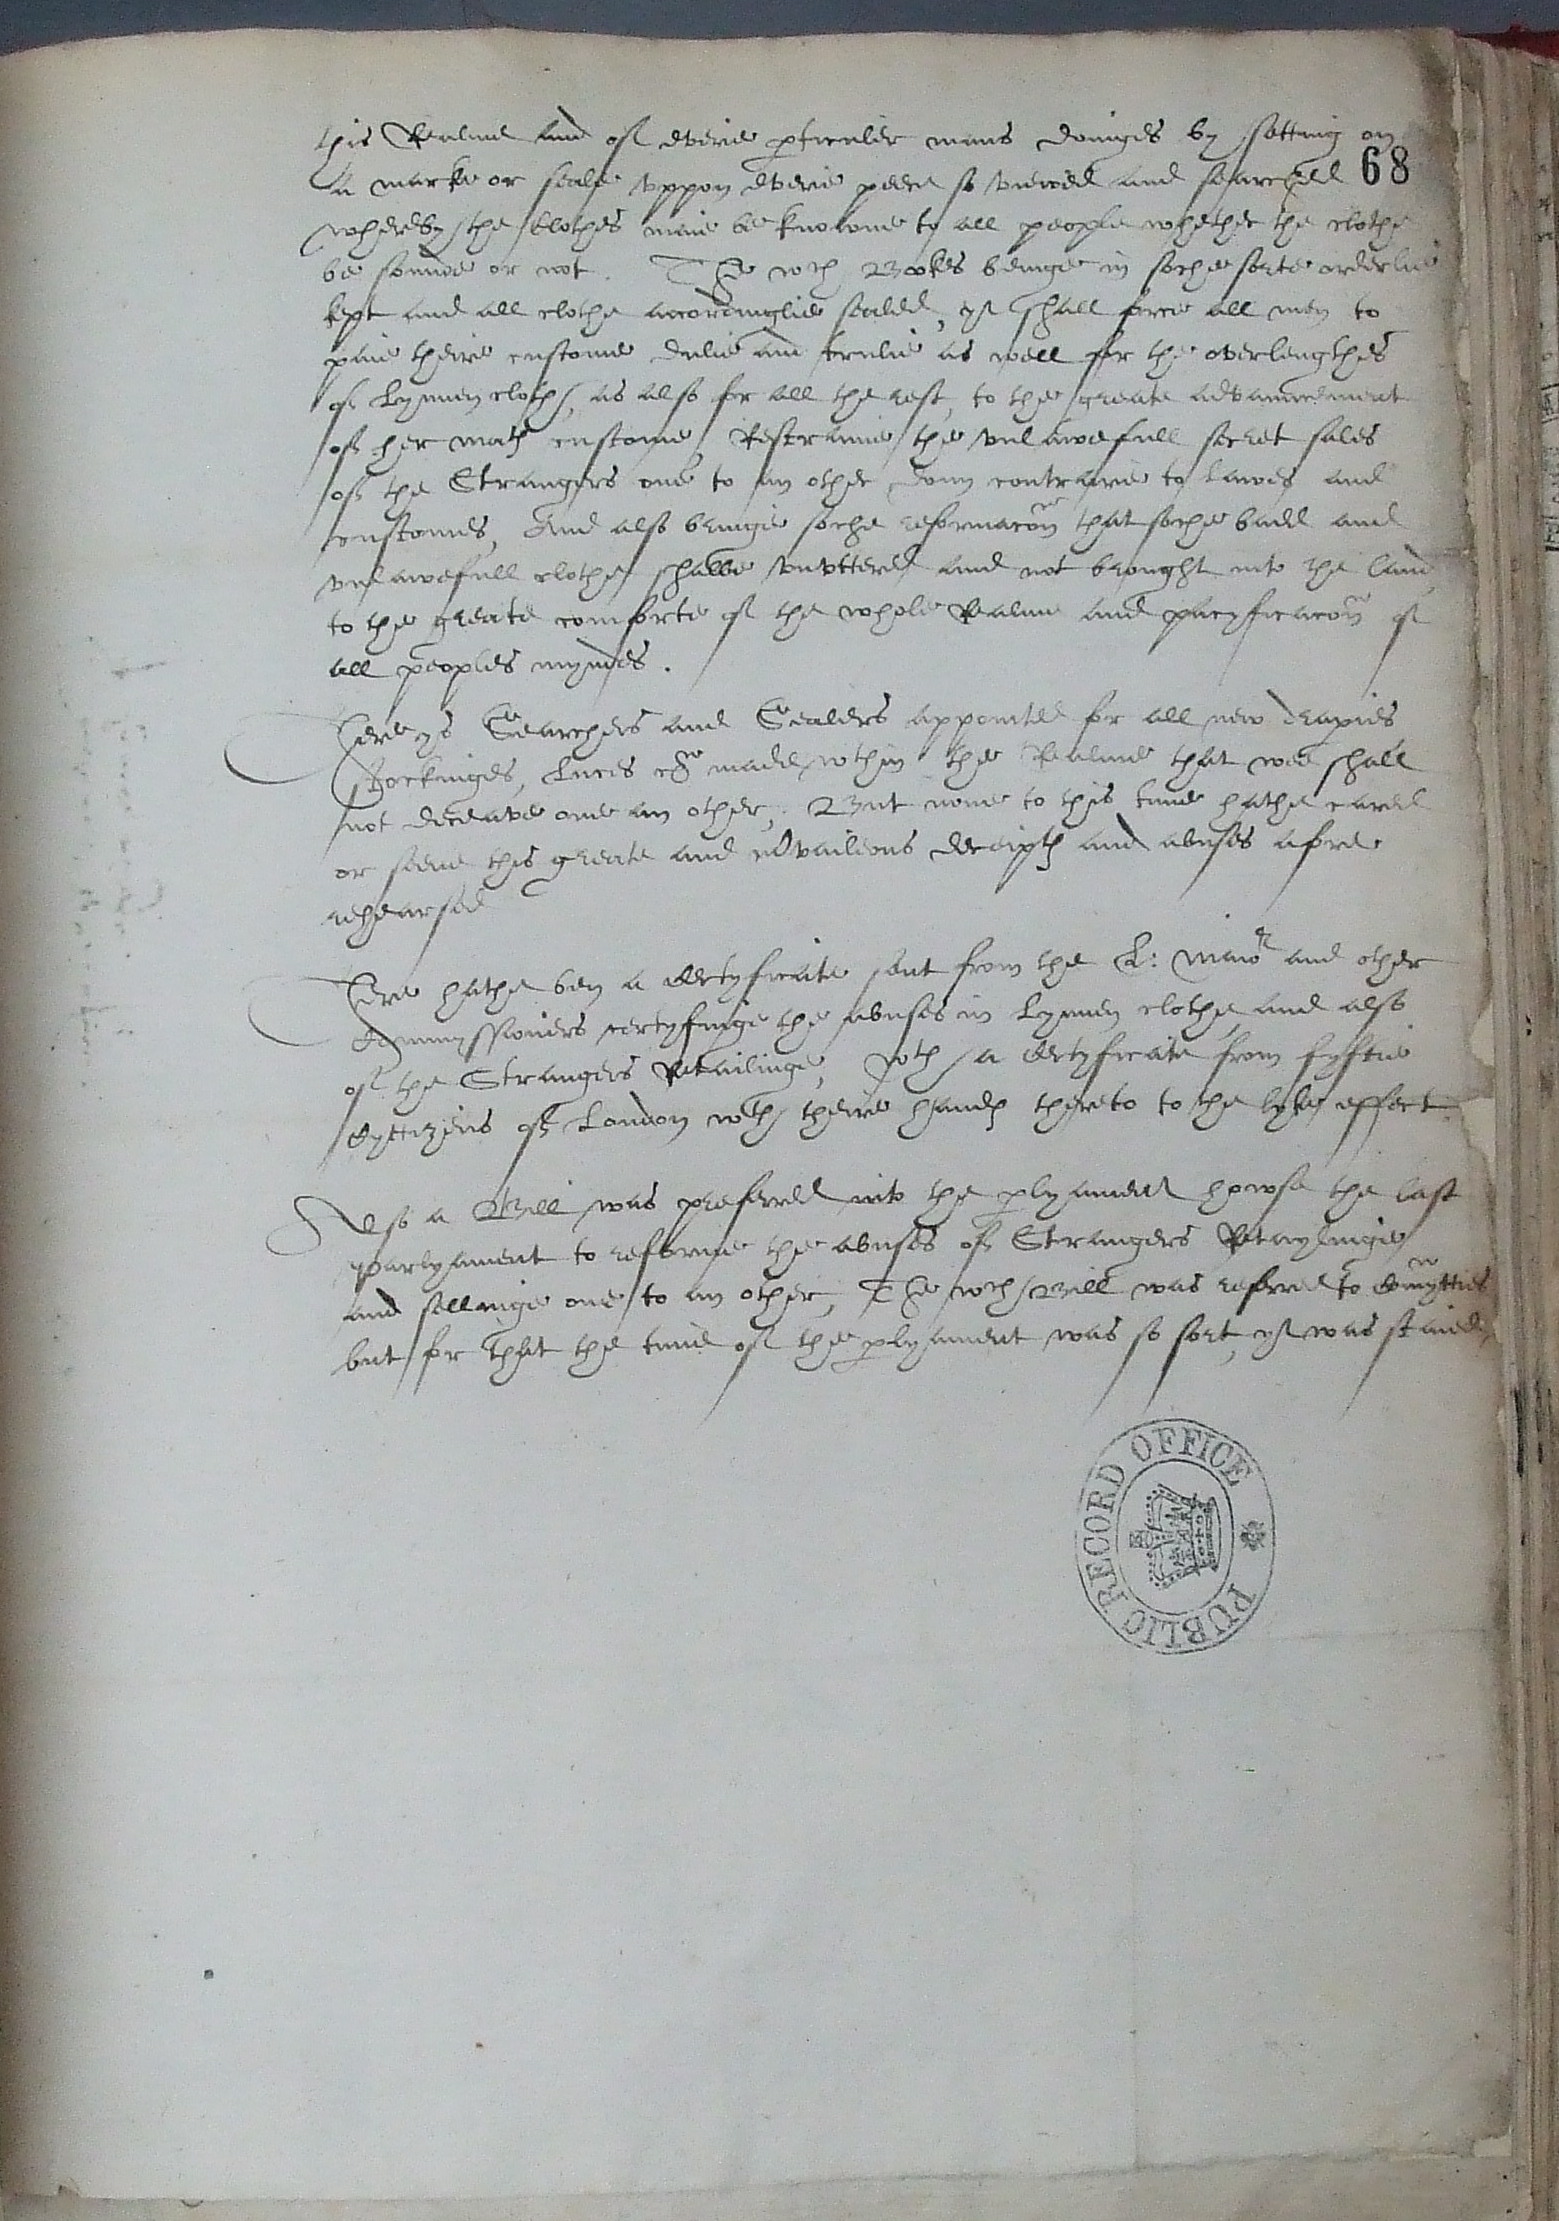 this Realme and of everie perticuler mans doinges by setting on
a marke or seale vppon everie peece so viewed and searched 68
whereby the clothes maie be knowne to all people whether the clothe
be sounde or not. The wch Bookes beinge in soche sorte orderlie
kept and all clothe accordinglie sealed, yt shall force all men to
paie theire custome dulie and trulie as well for the overlengthes
of Lynnen cloth, as also for all the rest, to the greate advauncement
of her Maties custome, Restraine the vnlawefull secret sales
of the Strangers one to an other donn contrarie to lawes and
customes, And also bringe soche reformacon that soche badd and
vnlawefull clothe shalbe vnvttered and not brought into the land,
to the greate comforte of the whole Realme and pacyficacon of
all peoples myndes.
There ys Searchers and Sealers appointed for all new drapies
Stockinges, Laces &c made within the Realme that wee shall
not deceave one an other, But none to this time hathe cared
or seene this greate and deceipts and abuses afore
rehearsed
There hathe ben a Certyficate sent from the L: Maior and other
Commyssioners certyfinge the abuses in Lynnen clothe, and also
of the Strangers Retailinge, wth a Certyficate from fyftie
Cyttizens of London wth theire hands thereto to the lyke effect.
Also a Bill was preferred into the plyament howse the last
parlyament to reforme the abuses of Strangers Retaylinge
and sellinge one to an other, The wch Bill was referred to Comytties
but for that the time of the plyament was so sort, yt was staied
PUBLIC RECORD OFFICE